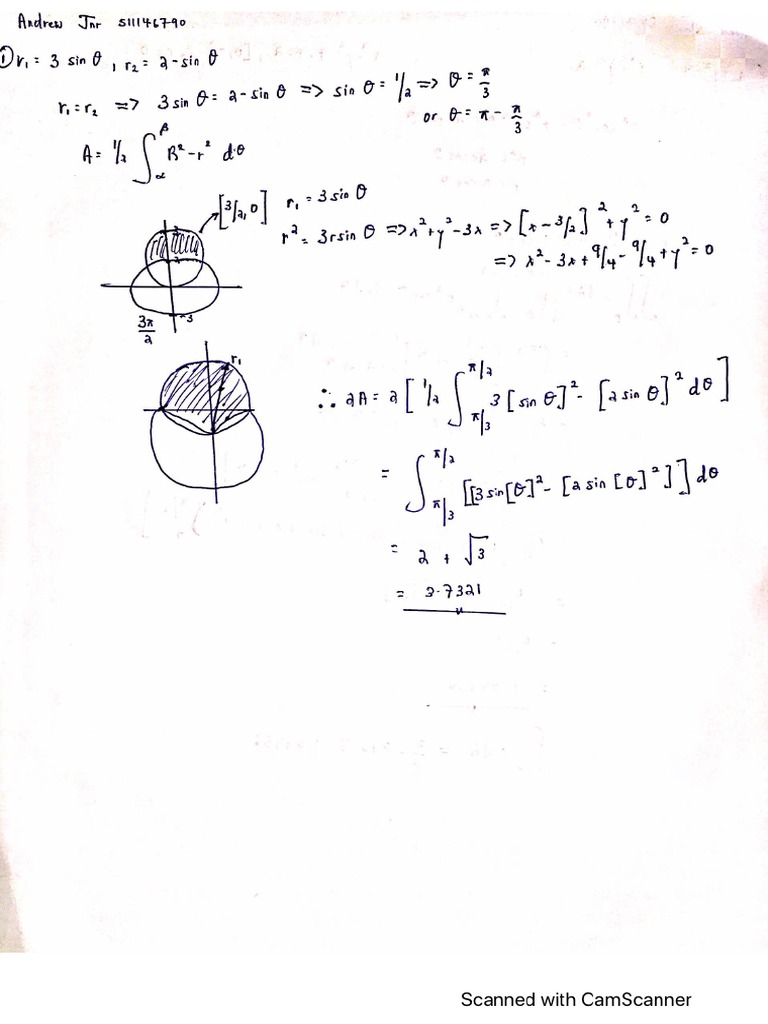 Andrew Jnr S11146790
① r₁ = 3 sin θ , r₂ = 2 - sin θ
r₁ = r₂ => 3 sin θ = 2 - sin θ => sin θ = 1/2 => θ = π/3
or θ = π - π/3
A = 1/2 ∫_α^β R² - r² dθ
[3/2, 0] r₁ = 3 sin θ
r² = 3r sin θ => x² + y² - 3x => [x - 3/2]² + y² = 0
=> x² - 3x + 9/4 - 9/4 + y² = 0
3π/2
-3
r₁
∴ 2A = 2 [ 1/2 ∫_{π/3}^{π/2} 3 [sin θ]² - [2 sin θ]² dθ ]
= ∫_{π/3}^{π/2} [[3 sin [θ]² - [2 sin [θ]²]] dθ
= 2 + √3
= 3.7321
Scanned with CamScanner